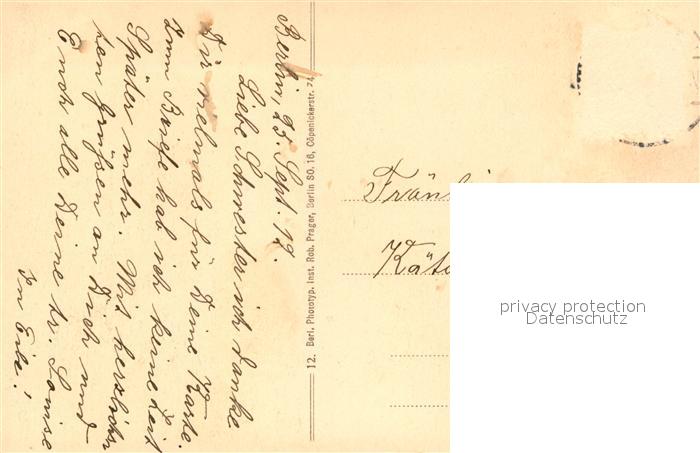 Berlin, 25. Sept. 12.
Liebe Schwester ich danke
Dir vielmals für Deine Karte.
Zum Briefe hab ich keine Zeit
Später mehr. Mit herzlichsten
Grüßen an Dich und
Euch alle Deine tr. Louise
In Eile!
12. Berl. Phototyp. Inst. Rob. Prager, Berlin SO. 16, Cöpenickerstr. 74
Fräul
Käte
privacy protection
Datenschutz